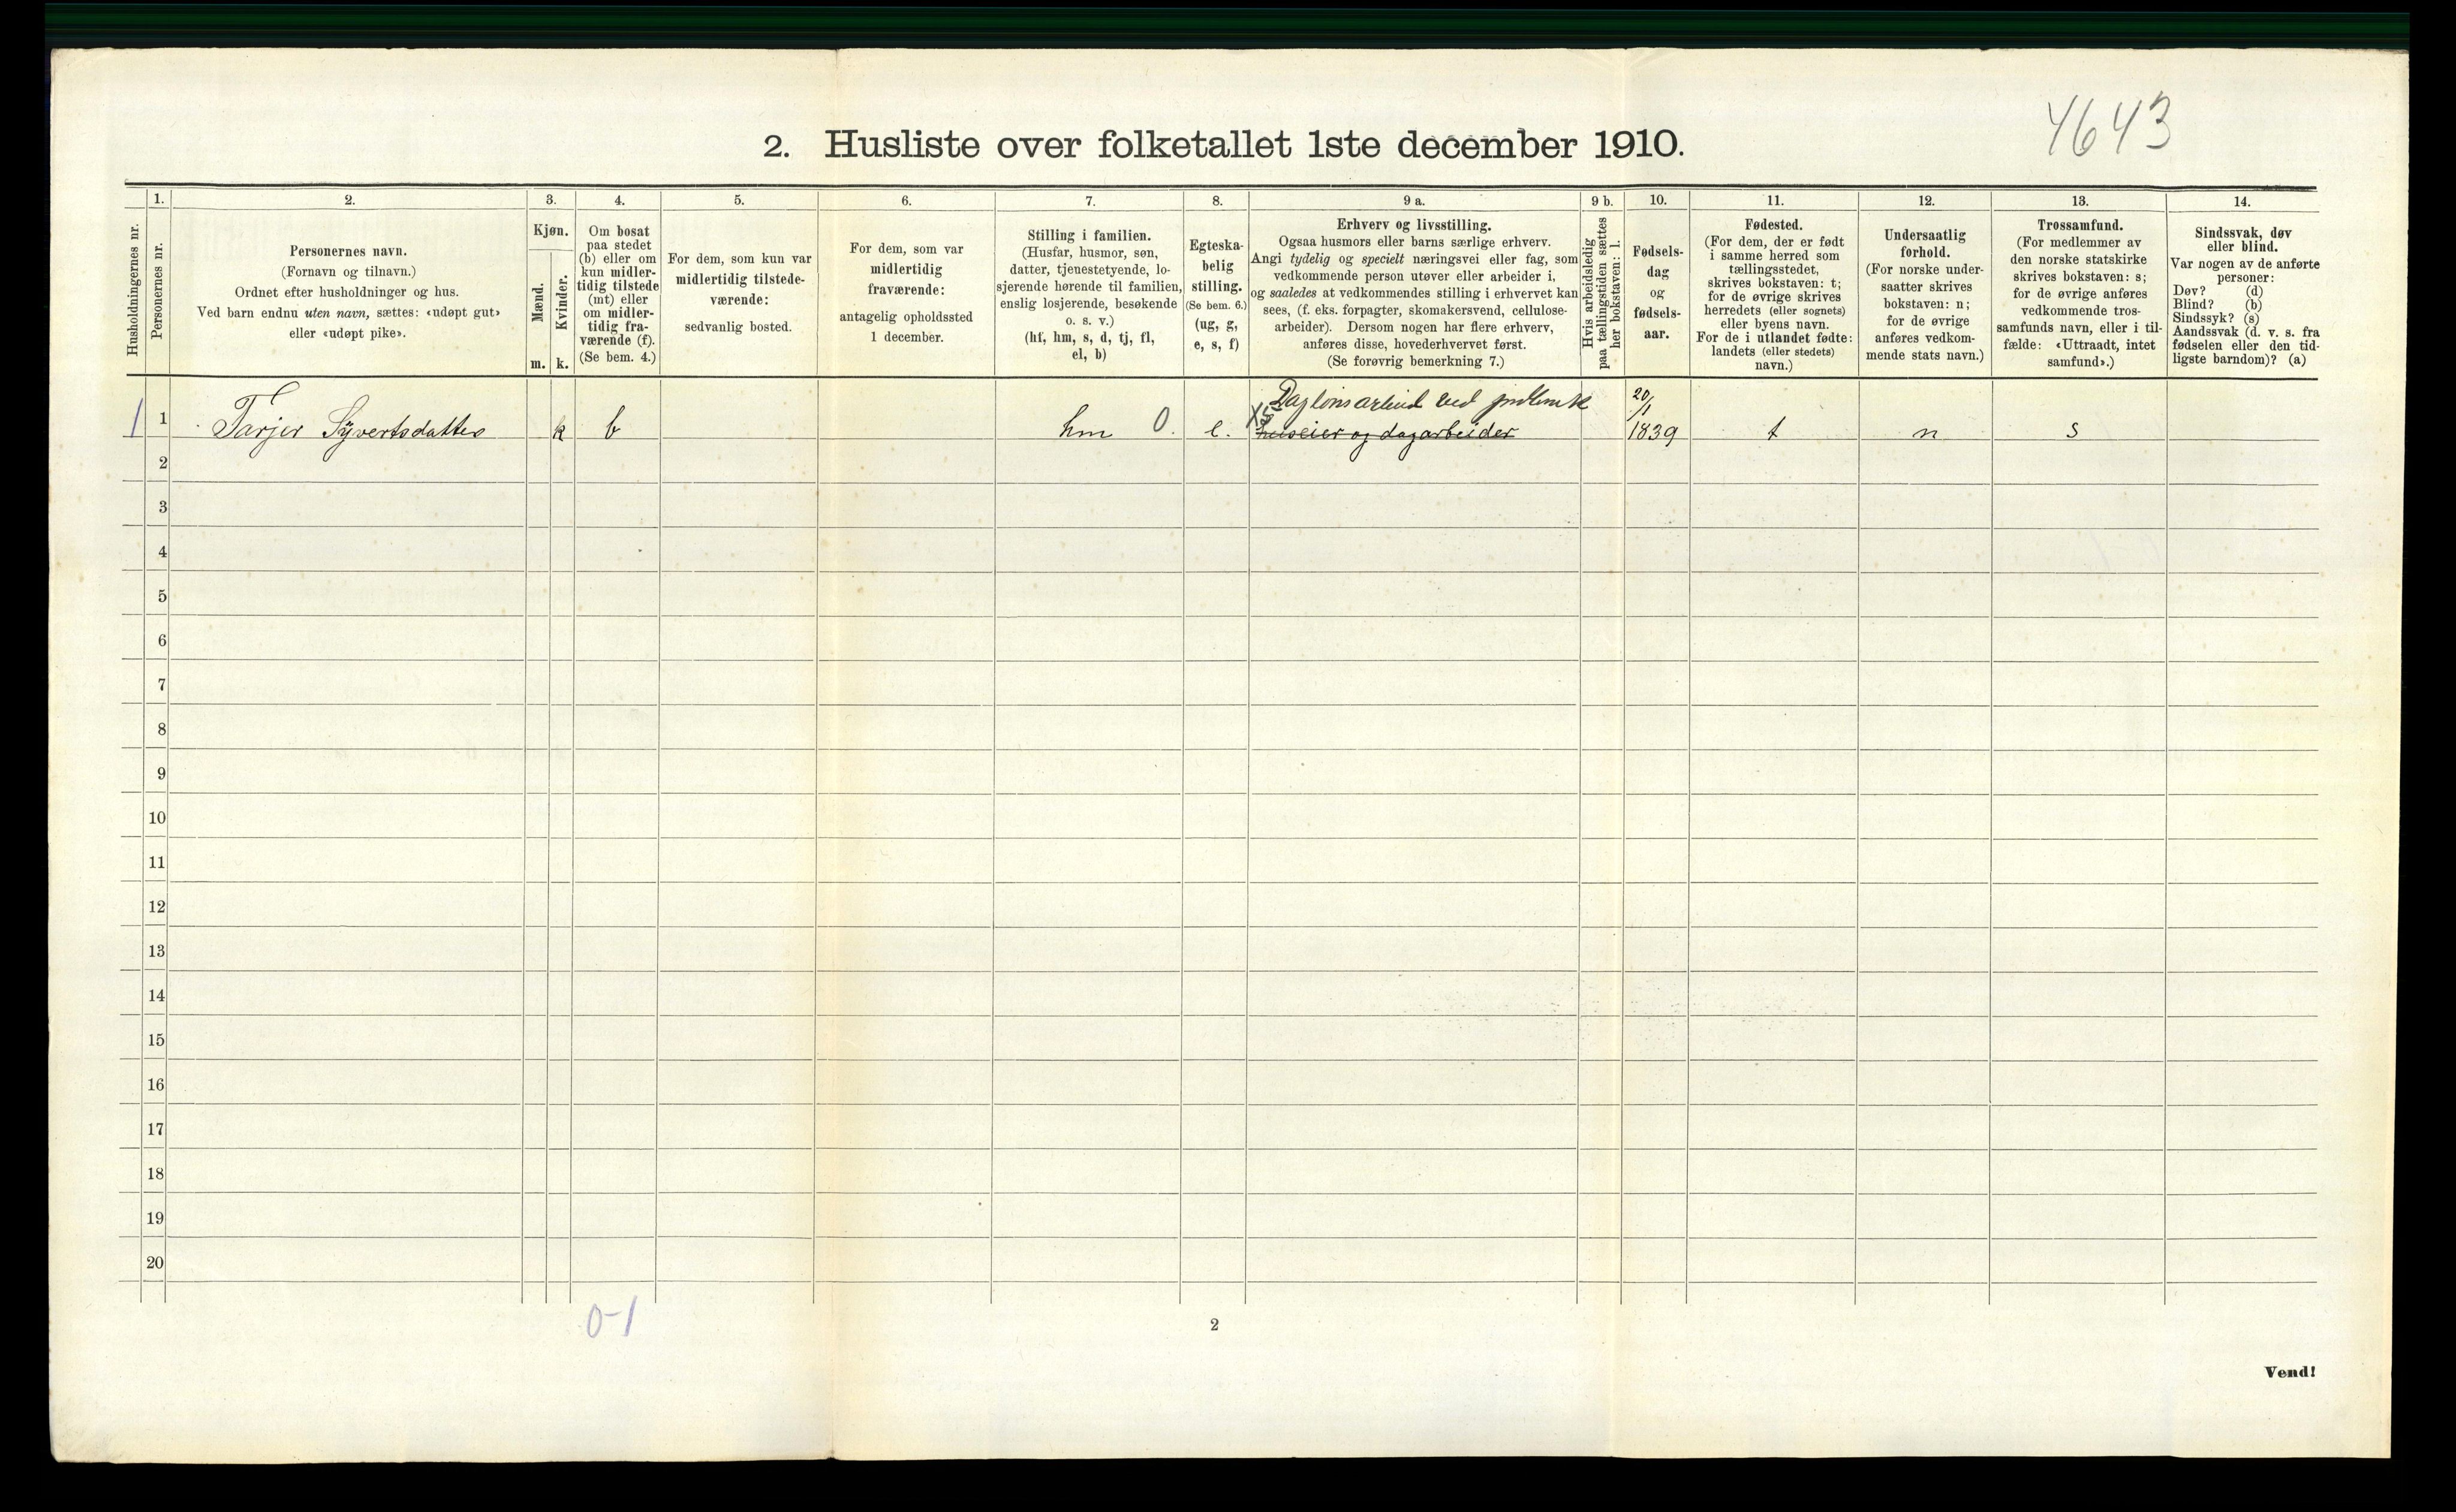 4643
2. Husliste over folketallet 1ste december 1910.
Husholdningernes nr.
1.
Personernes nr.
2.
Personernes navn.
(Fornavn og tilnavn.)
Ordnet efter husholdninger og hus.
Ved barn endnu uten navn, sættes: «udøpt gut»
eller «udøpt pike».
3.
Kjøn.
Mænd.
Kvinder.
m. k.
4.
Om bosat
paa stedet
(b) eller om
kun midler-
tidig tilstede
(mt) eller
om midler-
tidig fra-
værende (f).
(Se bem. 4.)
5.
For dem, som kun var
midlertidig tilstede-
værende:
sedvanlig bosted.
6.
For dem, som var
midlertidig
fraværende:
antagelig opholdssted
1 december.
7.
Stilling i familien.
(Husfar, husmor, søn,
datter, tjenestetyende, lo-
sjerende hørende til familien,
enslig losjerende, besøkende
o. s. v.)
(hf, hm, s, d, tj, fl,
el, b)
8.
Egteska-
belig
stilling.
(Se bem. 6.)
(ug, g,
e, s, f)
9 a.
Erhverv og livsstilling.
Ogsaa husmors eller barns særlige erhverv.
Angi tydelig og specielt næringsvei eller fag, som
vedkommende person utøver eller arbeider i,
og saaledes at vedkommendes stilling i erhvervet kan
sees, (f. eks. forpagter, skomakersvend, cellulose-
arbeider). Dersom nogen har flere erhverv,
anføres disse, hovederhvervet først.
(Se forøvrig bemerkning 7.)
9 b.
Hvis arbeidsledig
paa tællingstiden sættes
her bokstaven: l.
10.
Fødsels-
dag
og
fødsels-
aar.
11.
Fødested.
(For dem, der er født
i samme herred som
tællingsstedet,
skrives bokstaven: t;
for de øvrige skrives
herredets (eller sognets)
eller byens navn.
For de i utlandet fødte:
landets (eller stedets)
navn.)
12.
Undersaatlig
forhold.
(For norske under-
saatter skrives
bokstaven: n;
for de øvrige
anføres vedkom-
mende stats navn.)
13.
Trossamfund.
(For medlemmer av
den norske statskirke
skrives bokstaven: s;
for de øvrige anføres
vedkommende tros-
samfunds navn, eller i til-
fælde: «Uttraadt, intet
samfund».)
14.
Sindssvak, døv
eller blind.
Var nogen av de anførte
personer:
Døv? (d)
Blind? (b)
Sindssyk? (s)
Aandssvak (d. v. s. fra
fødselen eller den tid-
ligste barndom)? (a)
Daglønsarbeid ved 20/1
1 1 Tarjer Syvertsdatter k b hm 0. e. huseier og dagarbeider 1839 t n s
2
3
4
5
6
7
8
9
10
11
12
13
14
15
16
17
18
19
20
0-1
2
Vend!